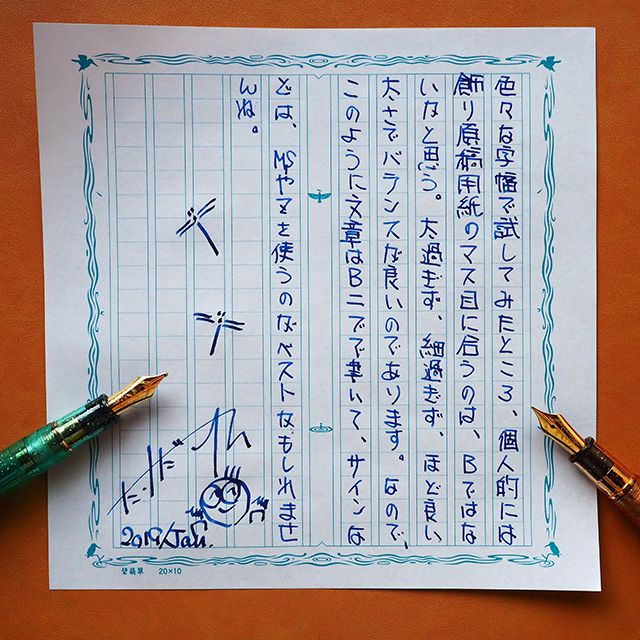 色々な字幅で試してみたところ、個人的には
飾り原稿用紙のマス目に合うのは、Bではな
いかと思う。太過ぎず、細過ぎず、ほど良い
太さでバランスが良いのであります。なので、
このように文章はBニブで書いて、サインな
どは、MSやZを使うのがベストかもしれませ
んね。
2019/Jan.
20×10